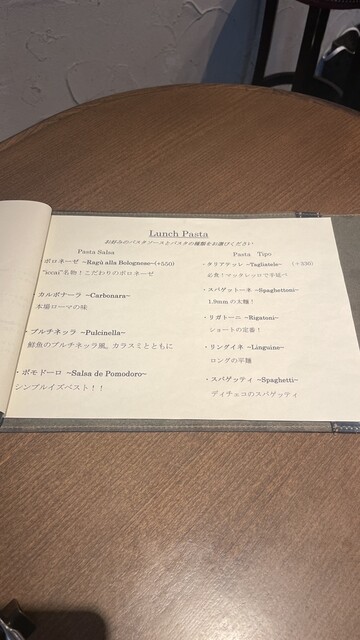 Lunch Pasta
お好みのパスタソースとパスタの種類をお選びください
Pasta Salsa
ボロネーゼ ~Ragù alla Bolognese~(+550)
"iccai"名物！こだわりのボロネーゼ
カルボナーラ ~Carbonara~
本場ローマの味
・プルチネッラ ~Pulcinella~
鮮魚のプルチネッラ風。カラスミとともに
・ポモドーロ ~Salsa de Pomodoro~
シンプルイズベスト！！
Pasta Tipo
・タリアテッレ ~Tagliatele~ (+330)
必食！マッタレッロで手延べ
・スパゲットーネ ~Spaghettoni~
1.9mm の太麺！
・リガトーニ ~Rigatoni~
ショートの定番！
・リングイネ ~Linguine~
ロングの平麺
・スパゲッティ ~Spaghetti~
ディチェコのスパゲッティ